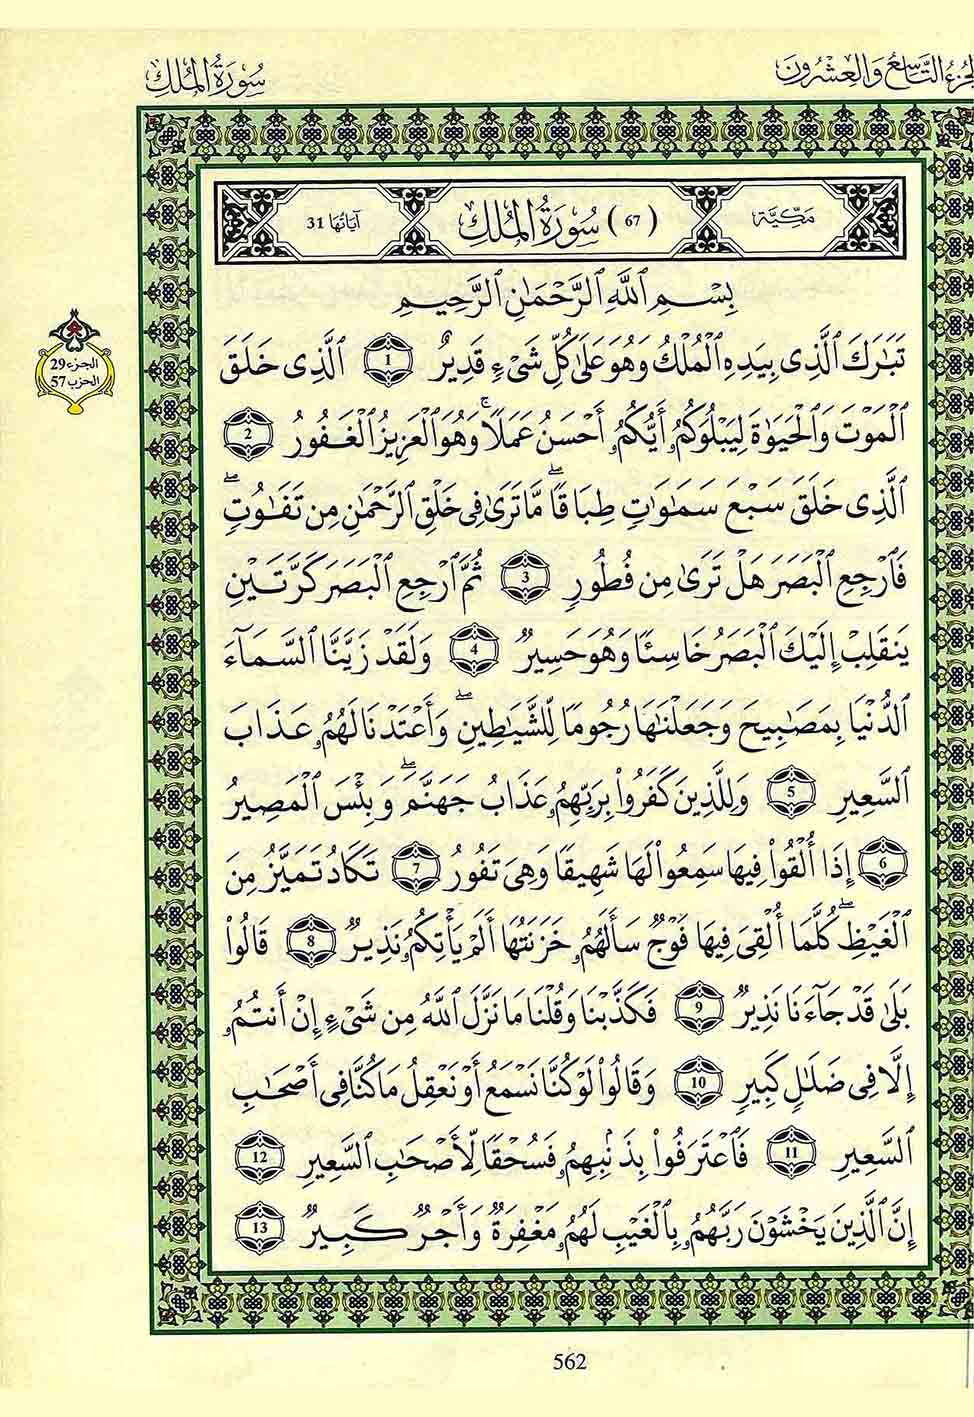 الجزء التاسع والعشرون
سورة الملك
مكية
(67) سورة الملك
آياتها 31
بِسْمِ ٱللَّهِ ٱلرَّحْمَٰنِ ٱلرَّحِيمِ
الجزء 29
الحزب 57
تَبَٰرَكَ ٱلَّذِى بِيَدِهِ ٱلْمُلْكُ وَهُوَ عَلَىٰ كُلِّ شَىْءٍ قَدِيرٌ 1 ٱلَّذِى خَلَقَ
ٱلْمَوْتَ وَٱلْحَيَوٰةَ لِيَبْلُوَكُمُۥ أَيُّكُمُۥ أَحْسَنُ عَمَلًاۚ وَهُوَ ٱلْعَزِيزُ ٱلْغَفُورُ 2
ٱلَّذِى خَلَقَ سَبْعَ سَمَٰوَٰتٍ طِبَاقًاۖ مَّا تَرَىٰ فِى خَلْقِ ٱلرَّحْمَٰنِ مِن تَفَٰوُتٍۖ
فَٱرْجِعِ ٱلْبَصَرَ هَلْ تَرَىٰ مِن فُطُورٍ 3 ثُمَّ ٱرْجِعِ ٱلْبَصَرَ كَرَّتَيْنِ
يَنقَلِبْ إِلَيْكَ ٱلْبَصَرُ خَاسِئًا وَهُوَ حَسِيرٌ 4 وَلَقَدْ زَيَّنَّا ٱلسَّمَآءَ
ٱلدُّنْيَا بِمَصَٰبِيحَ وَجَعَلْنَٰهَا رُجُومًا لِّلشَّيَٰطِينِۖ وَأَعْتَدْنَا لَهُمُۥ عَذَابَ
ٱلسَّعِيرِ 5 وَلِلَّذِينَ كَفَرُوا۟ بِرَبِّهِمُۥ عَذَابُ جَهَنَّمَۖ وَبِئْسَ ٱلْمَصِيرُ
6 إِذَا أُلْقُوا۟ فِيهَا سَمِعُوا۟ لَهَا شَهِيقًا وَهِىَ تَفُورُ 7 تَكَادُ تَمَيَّزُ مِنَ
ٱلْغَيْظِۖ كُلَّمَا أُلْقِىَ فِيهَا فَوْجٌ سَأَلَهُمُۥ خَزَنَتُهَا أَلَمْ يَأْتِكُمُۥ نَذِيرٌ 8 قَالُوا۟
بَلَىٰ قَدْ جَآءَنَا نَذِيرٌ 9 فَكَذَّبْنَا وَقُلْنَا مَا نَزَّلَ ٱللَّهُ مِن شَىْءٍ إِنْ أَنتُمُۥ
إِلَّا فِى ضَلَٰلٍ كَبِيرٍ 10 وَقَالُوا۟ لَوْ كُنَّا نَسْمَعُ أَوْ نَعْقِلُ مَا كُنَّا فِى أَصْحَٰبِ
ٱلسَّعِيرِ 11 فَٱعْتَرَفُوا۟ بِذَنۢبِهِمُۥ فَسُحْقًا لِّأَصْحَٰبِ ٱلسَّعِيرِ 12
إِنَّ ٱلَّذِينَ يَخْشَوْنَ رَبَّهُمُۥ بِٱلْغَيْبِ لَهُمُۥ مَغْفِرَةٌ وَأَجْرٌ كَبِيرٌ 13
562